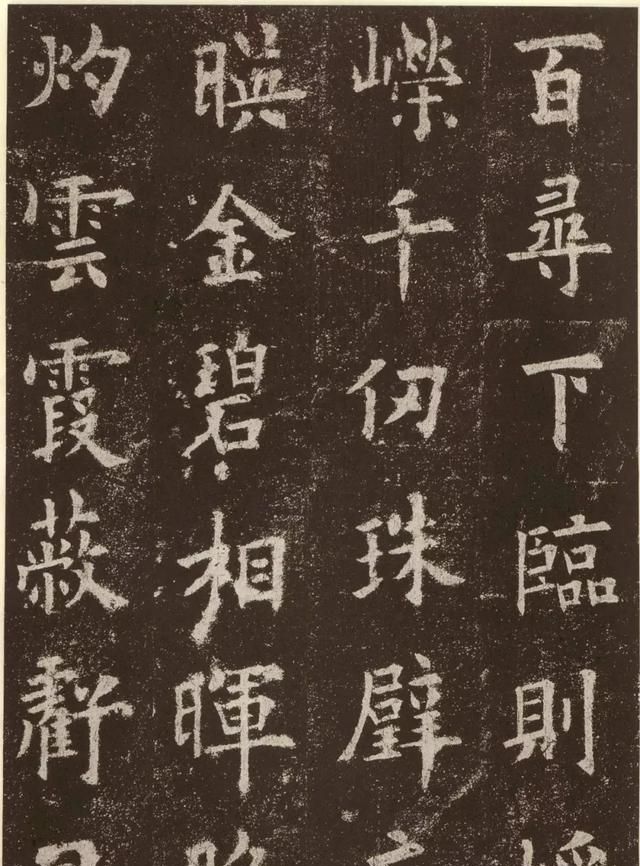 百尋下臨則
嶸千仞珠壁
暎金碧相暉
灼雲霞蔽虧